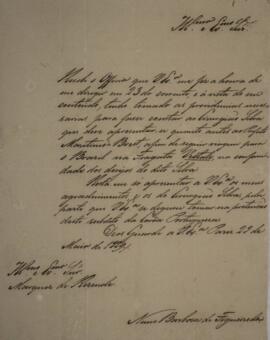 Illmo Exmo Snr
Recebi o Officio que V. Exa. me fez a honra de
me dirigir em 23 do corrente, e á vista de seu
contendo, tenho tomado as providencias neces
sarias para fazer constar ao Cirurgião Silva
que deve apresentar-se quanto antes ao
Maritimo em Brest, a fim de seguir viagem para
o Brazil na Fragata
dade dos desejos do dito Silva.
Resta-me só apresentar a V. Exa. os meus
agradecimentos, e os do Cirurgião Silva, pela
parte que V. Exa. se dignou tomar na pertenção
deste subdito da Coroa Portugueza.
Deos Guarde a V. Exa. Paris 29 de
Maio de 1829.
Illmo Exmo Snr
Marquez de Rezende
Nuno Barboza de Figueiredo